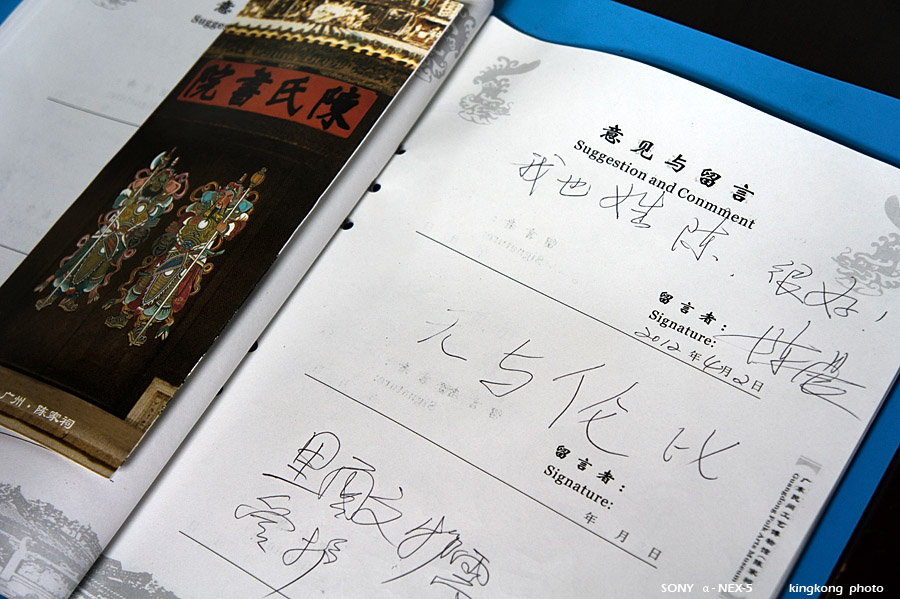 意
陳氏書院
广州·陈家祠
意见与留言
Suggestion and Conmment
我也姓陈,很好,
留言者:
Signature:
2012年4月2日
无与伦比
留言者:
Signature:
年 月 日
广东民间工艺博物馆
Guangdong Folk Arts Museum
SONY α-NEX-5 kingkong photo